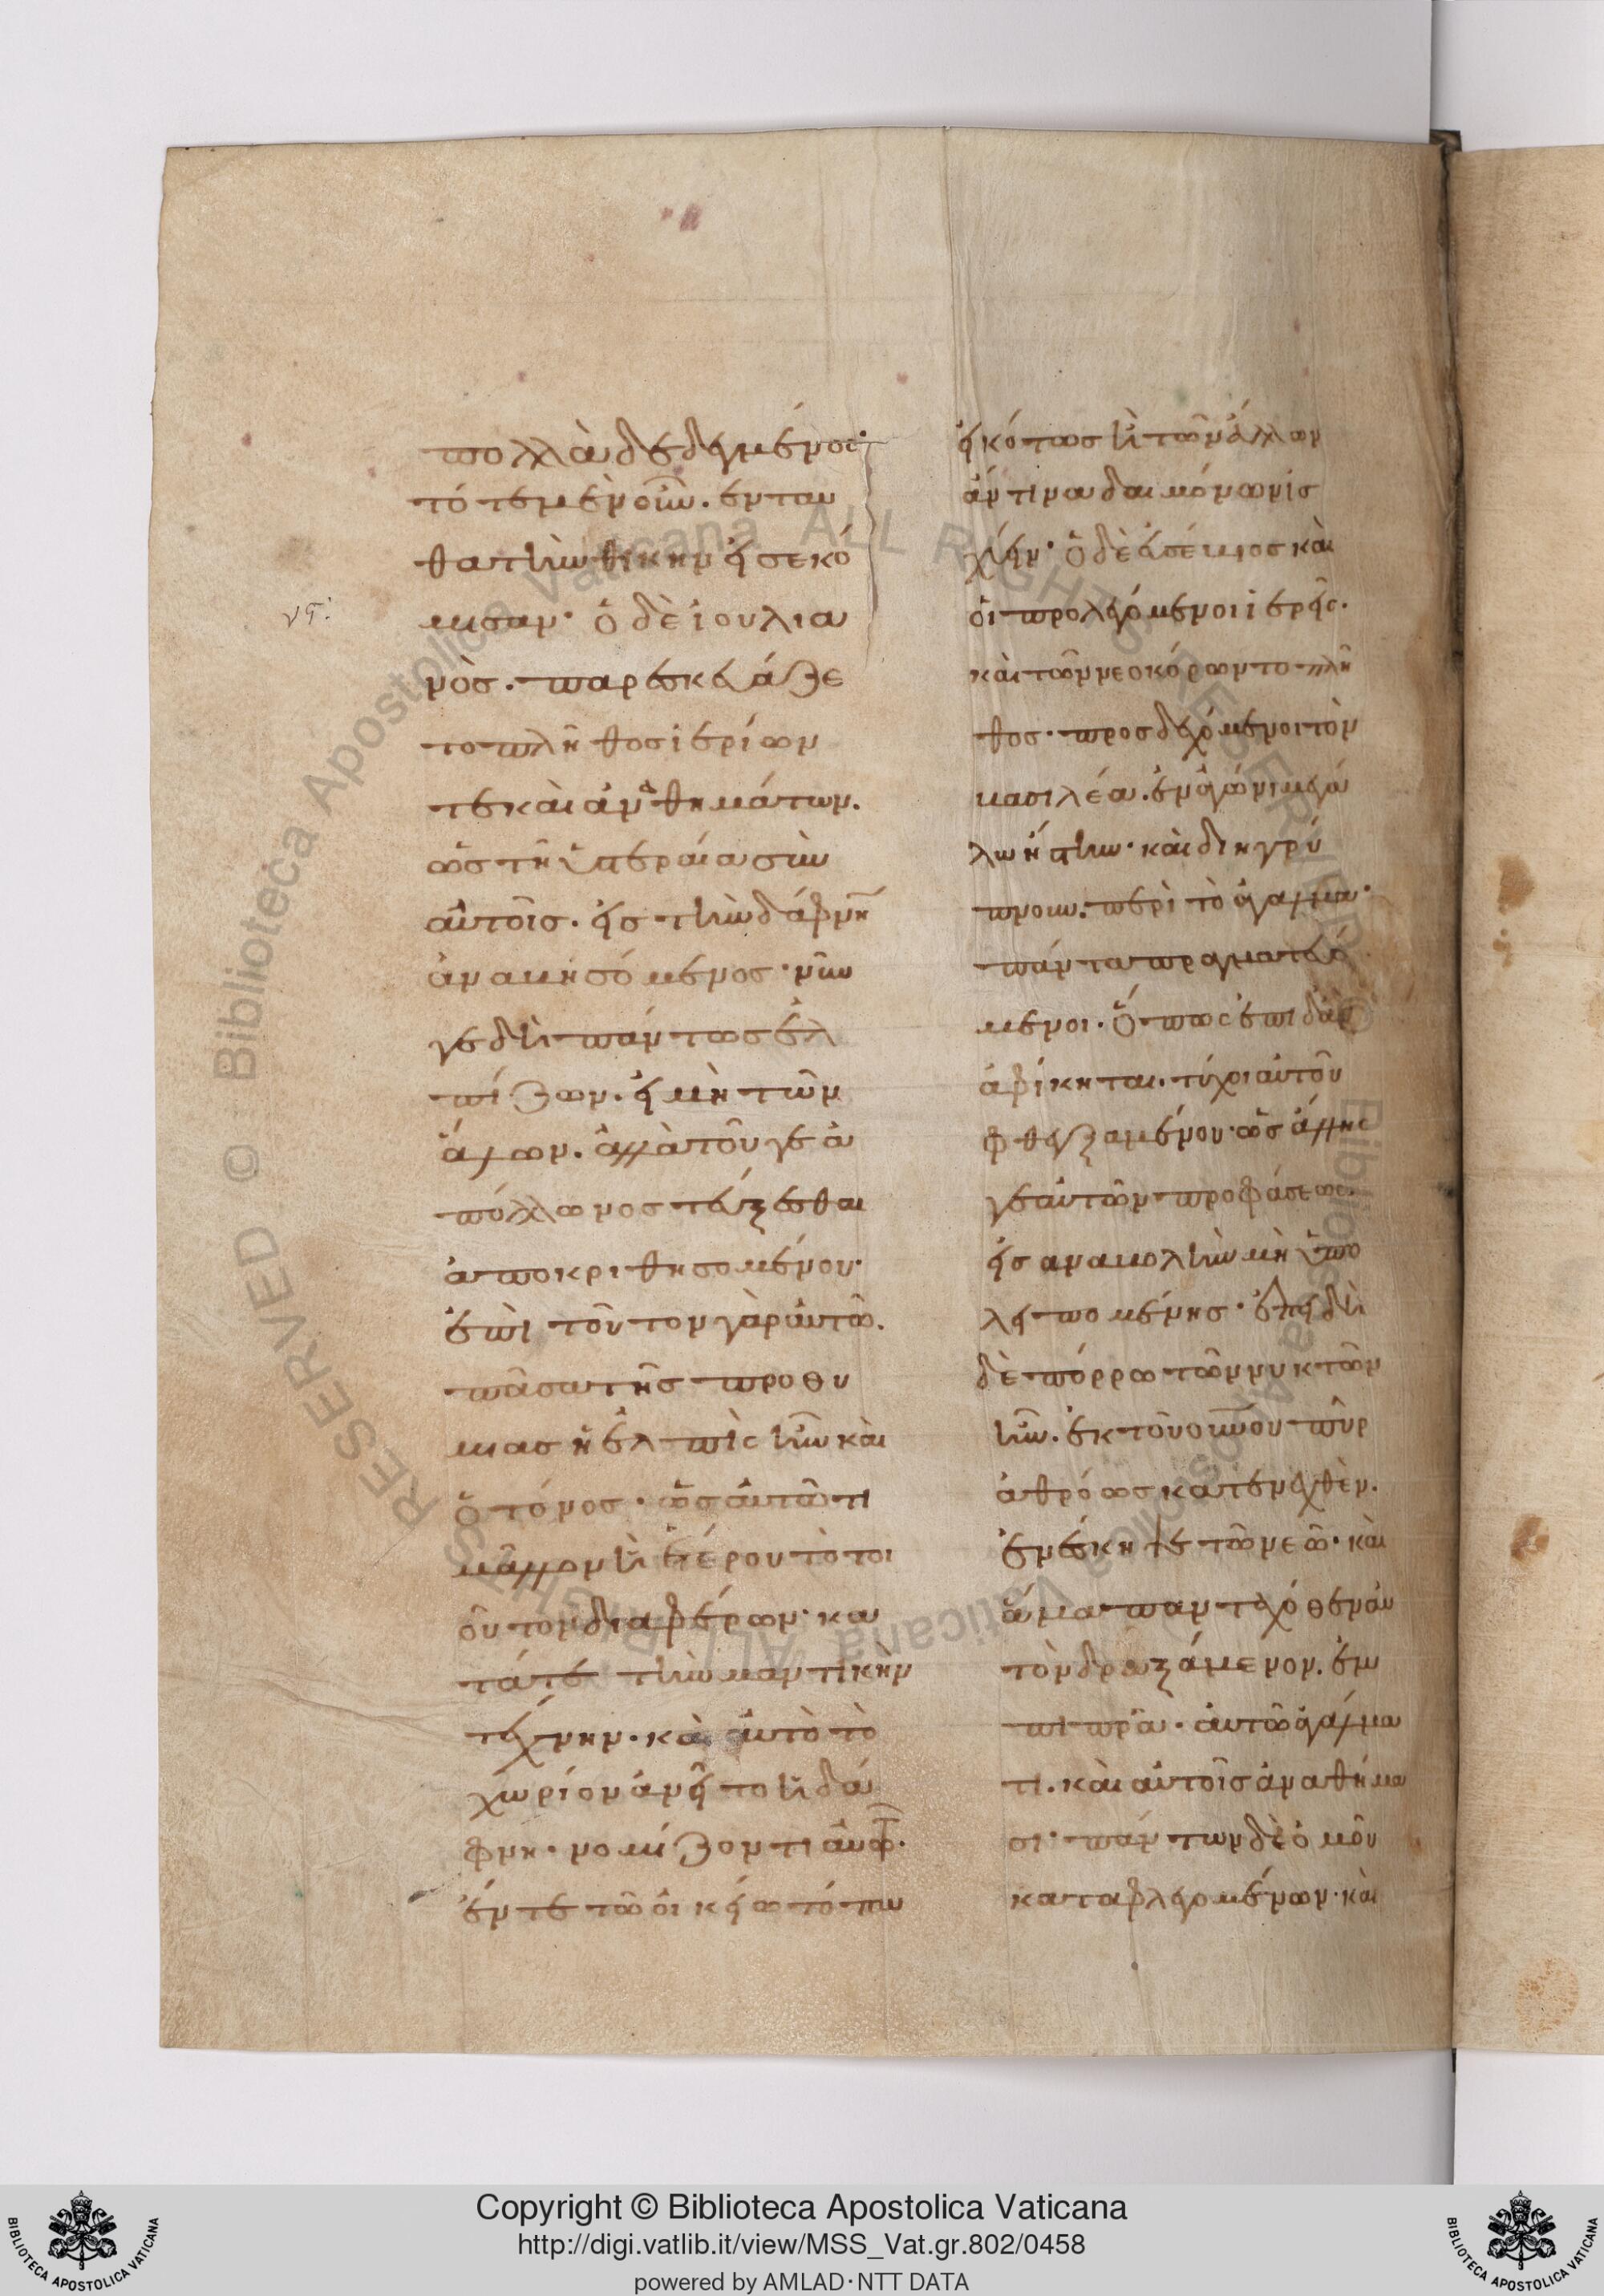 πολλὰ δεδειγμένος·
τότε μὲν οὖν. ενταυ
θα τὴν θήκην εἰσεκό
νϛ:
μισαν· ὁ δὲ ἰουλια
νὸς. παρεσκεύαζε
το πλῆθος ἱερίων
τε και ἀναθημάτων.
ὡς τῆ ὑστεραία σὺν
αὐτοῖς. εἰς τὴν δάφνην
ἀναβησόμενος· νῦν
γε δὴ πάντως ἐλ
πίζων. εἰ μὴ τῶν
ἄλλων. ἀλλὰ τοῦ γε ἀ
πόλλωνος τεύξεσθαι
ἀποκριθησομένου·
ἐπὶ τοῦτον γὰρ αὐτῶ.
πᾶσα τῆς προθυ
μιας ἡ ἐλπὶς ἦν καὶ
ὁ τόνος· ὡς αὐτῶ τι
μᾶλλον ἢ ἑτέρου τὸ τοι
οῦτον διαφέρων· κα
τά τε τὴν μαντικὴν
τέχνην. καὶ αὐτὸ τὸ
χωρίον ἀνεῖτο ἡ δά
φνη. νομίζοντι αὐτῶ.
ἔν τε τῶ οἰκείω τόπω
εἰκότως ἢ τῶν ἄλλων
ἄν τινα δαιμόνων ἰσ
χύειν· ὁ δὲ ἀρτέμιος και
οἱ προλεγόμενοι ἱερεῖς.
καὶ τῶν νεοκόρων το πλῆ
θος· προσδεχόμενοι τὸν
βασιλέα. ἐν ἀγῶνι μεγά
λω ἤστην· καὶ διηγρύ
πνουν. περὶ τὸ ἄγαλμα·
πάντα πραγματευό
μενοι. ὅπως ἐπειδὰν
ἀφίκηται. τύχοι αὐτοῦ
φθεγξαμένου· ὡς ἄλλης
γε αὐτῶν προφάσεως
εἰς αναβολὴν μὴ ὑπο
λειπομένης· ἐπειδὴ
δὲ πόρρω τῶν νυκτῶν
ἦν. ἐκ τοῦ οὐνου πῦρ
ἀθρόως κατενεχθὲν.
ἐνέσκηψε τῶ νεῶ· καὶ
ἅμα πανταχόθεν αὐ
τὸν δραξάμενον. ἐμ
πιπρᾶ· αὐτῶ ἀγάλμα
τι. και αὐτοῖς ἀναθήμα
σι· πάντων δὲ ὁμοῦ
καταφλεγομένων· καὶ
Copyright © Biblioteca Apostolica Vaticana
http://digi.vatlib.it/view/MSS_Vat.gr.802/0458
powered by AMLAD·NTT DATA